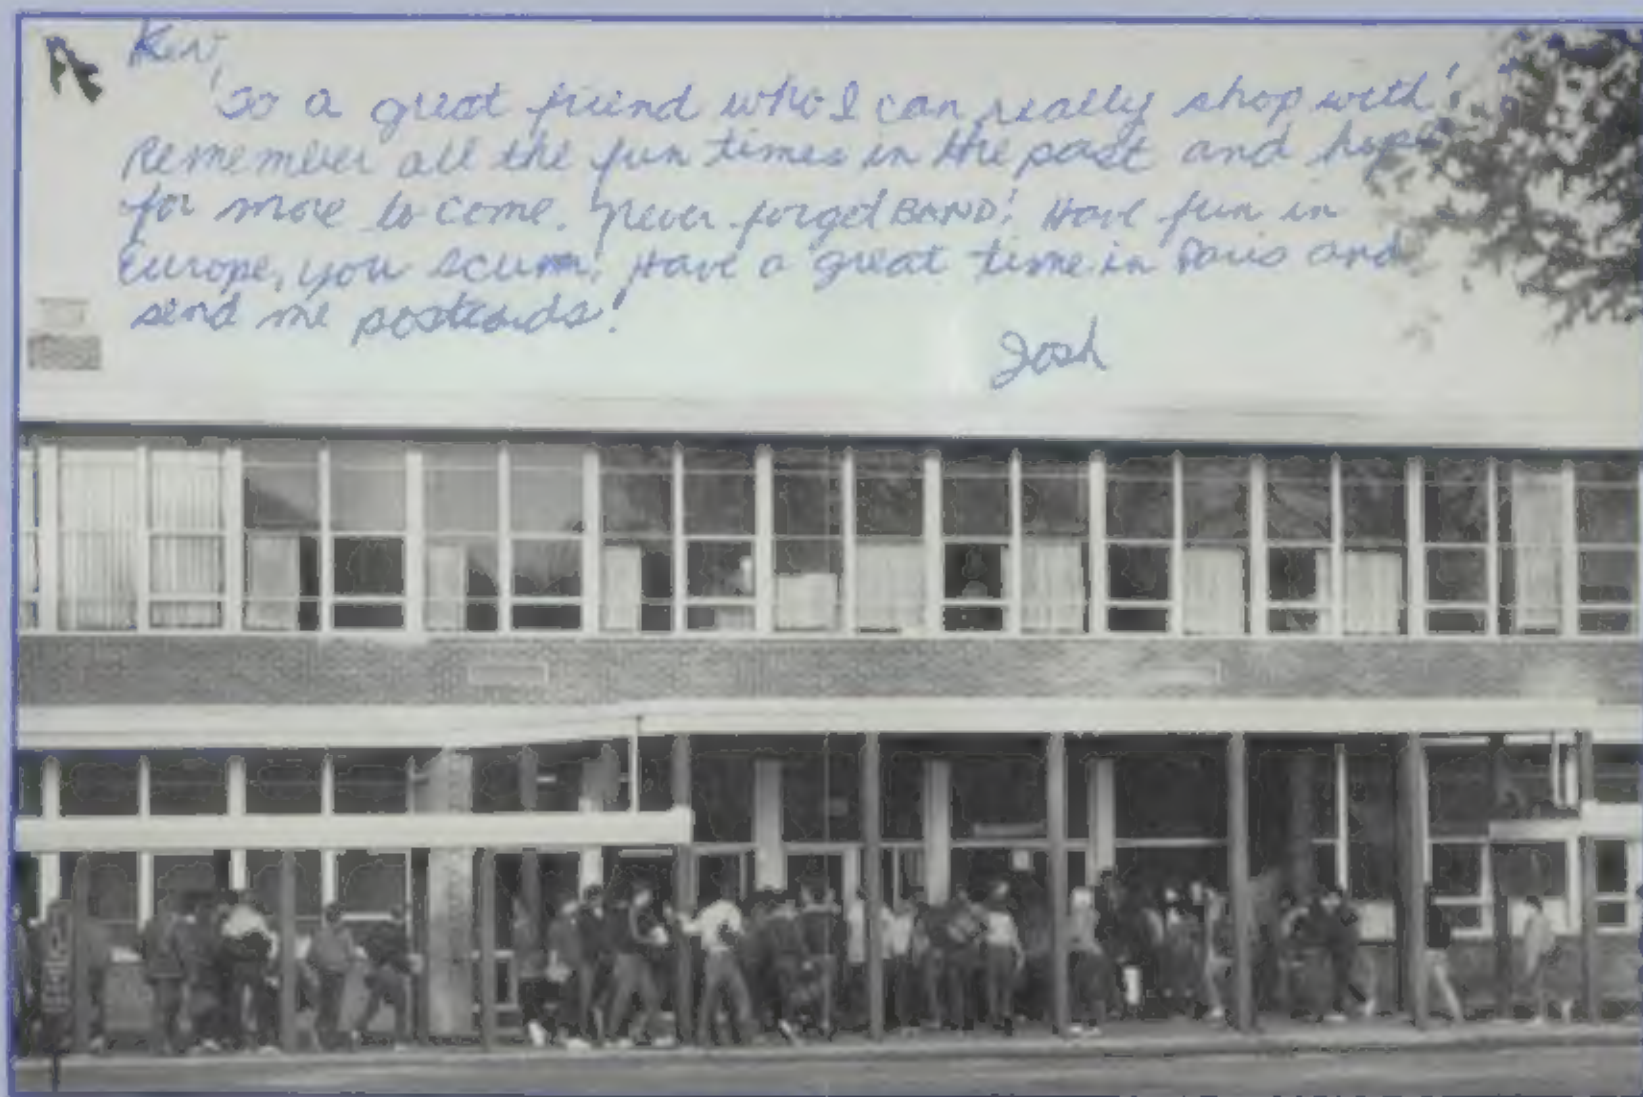 Ken,
To a great friend who I can really shop with!
Remember all the fun times in the past and hope
for more to come. Never forget BAND! Have fun in
Europe, you scum! Have a great time in Paris and
send me postcards!
Josh